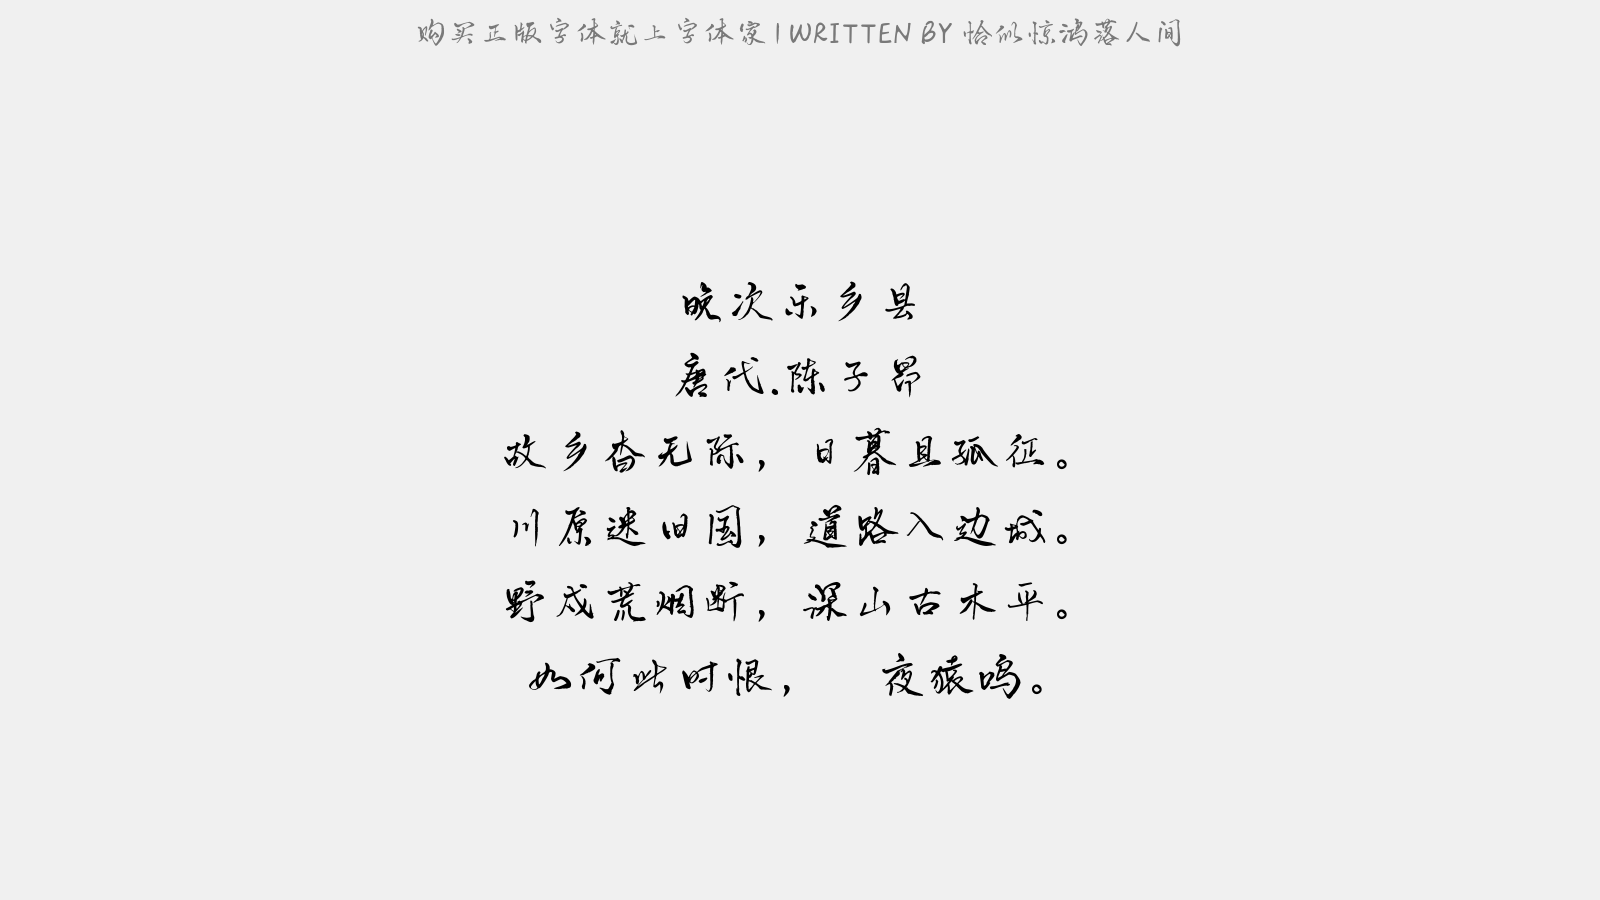 购买正版字体就上字体家 | WRITTEN BY 恰似惊鸿落人间
晚次乐乡县
唐代.陈子昂
故乡杳无际，日暮且孤征。
川原迷旧国，道路入边城。
野戍荒烟断，深山古木平。
如何此时恨， 夜猿鸣。